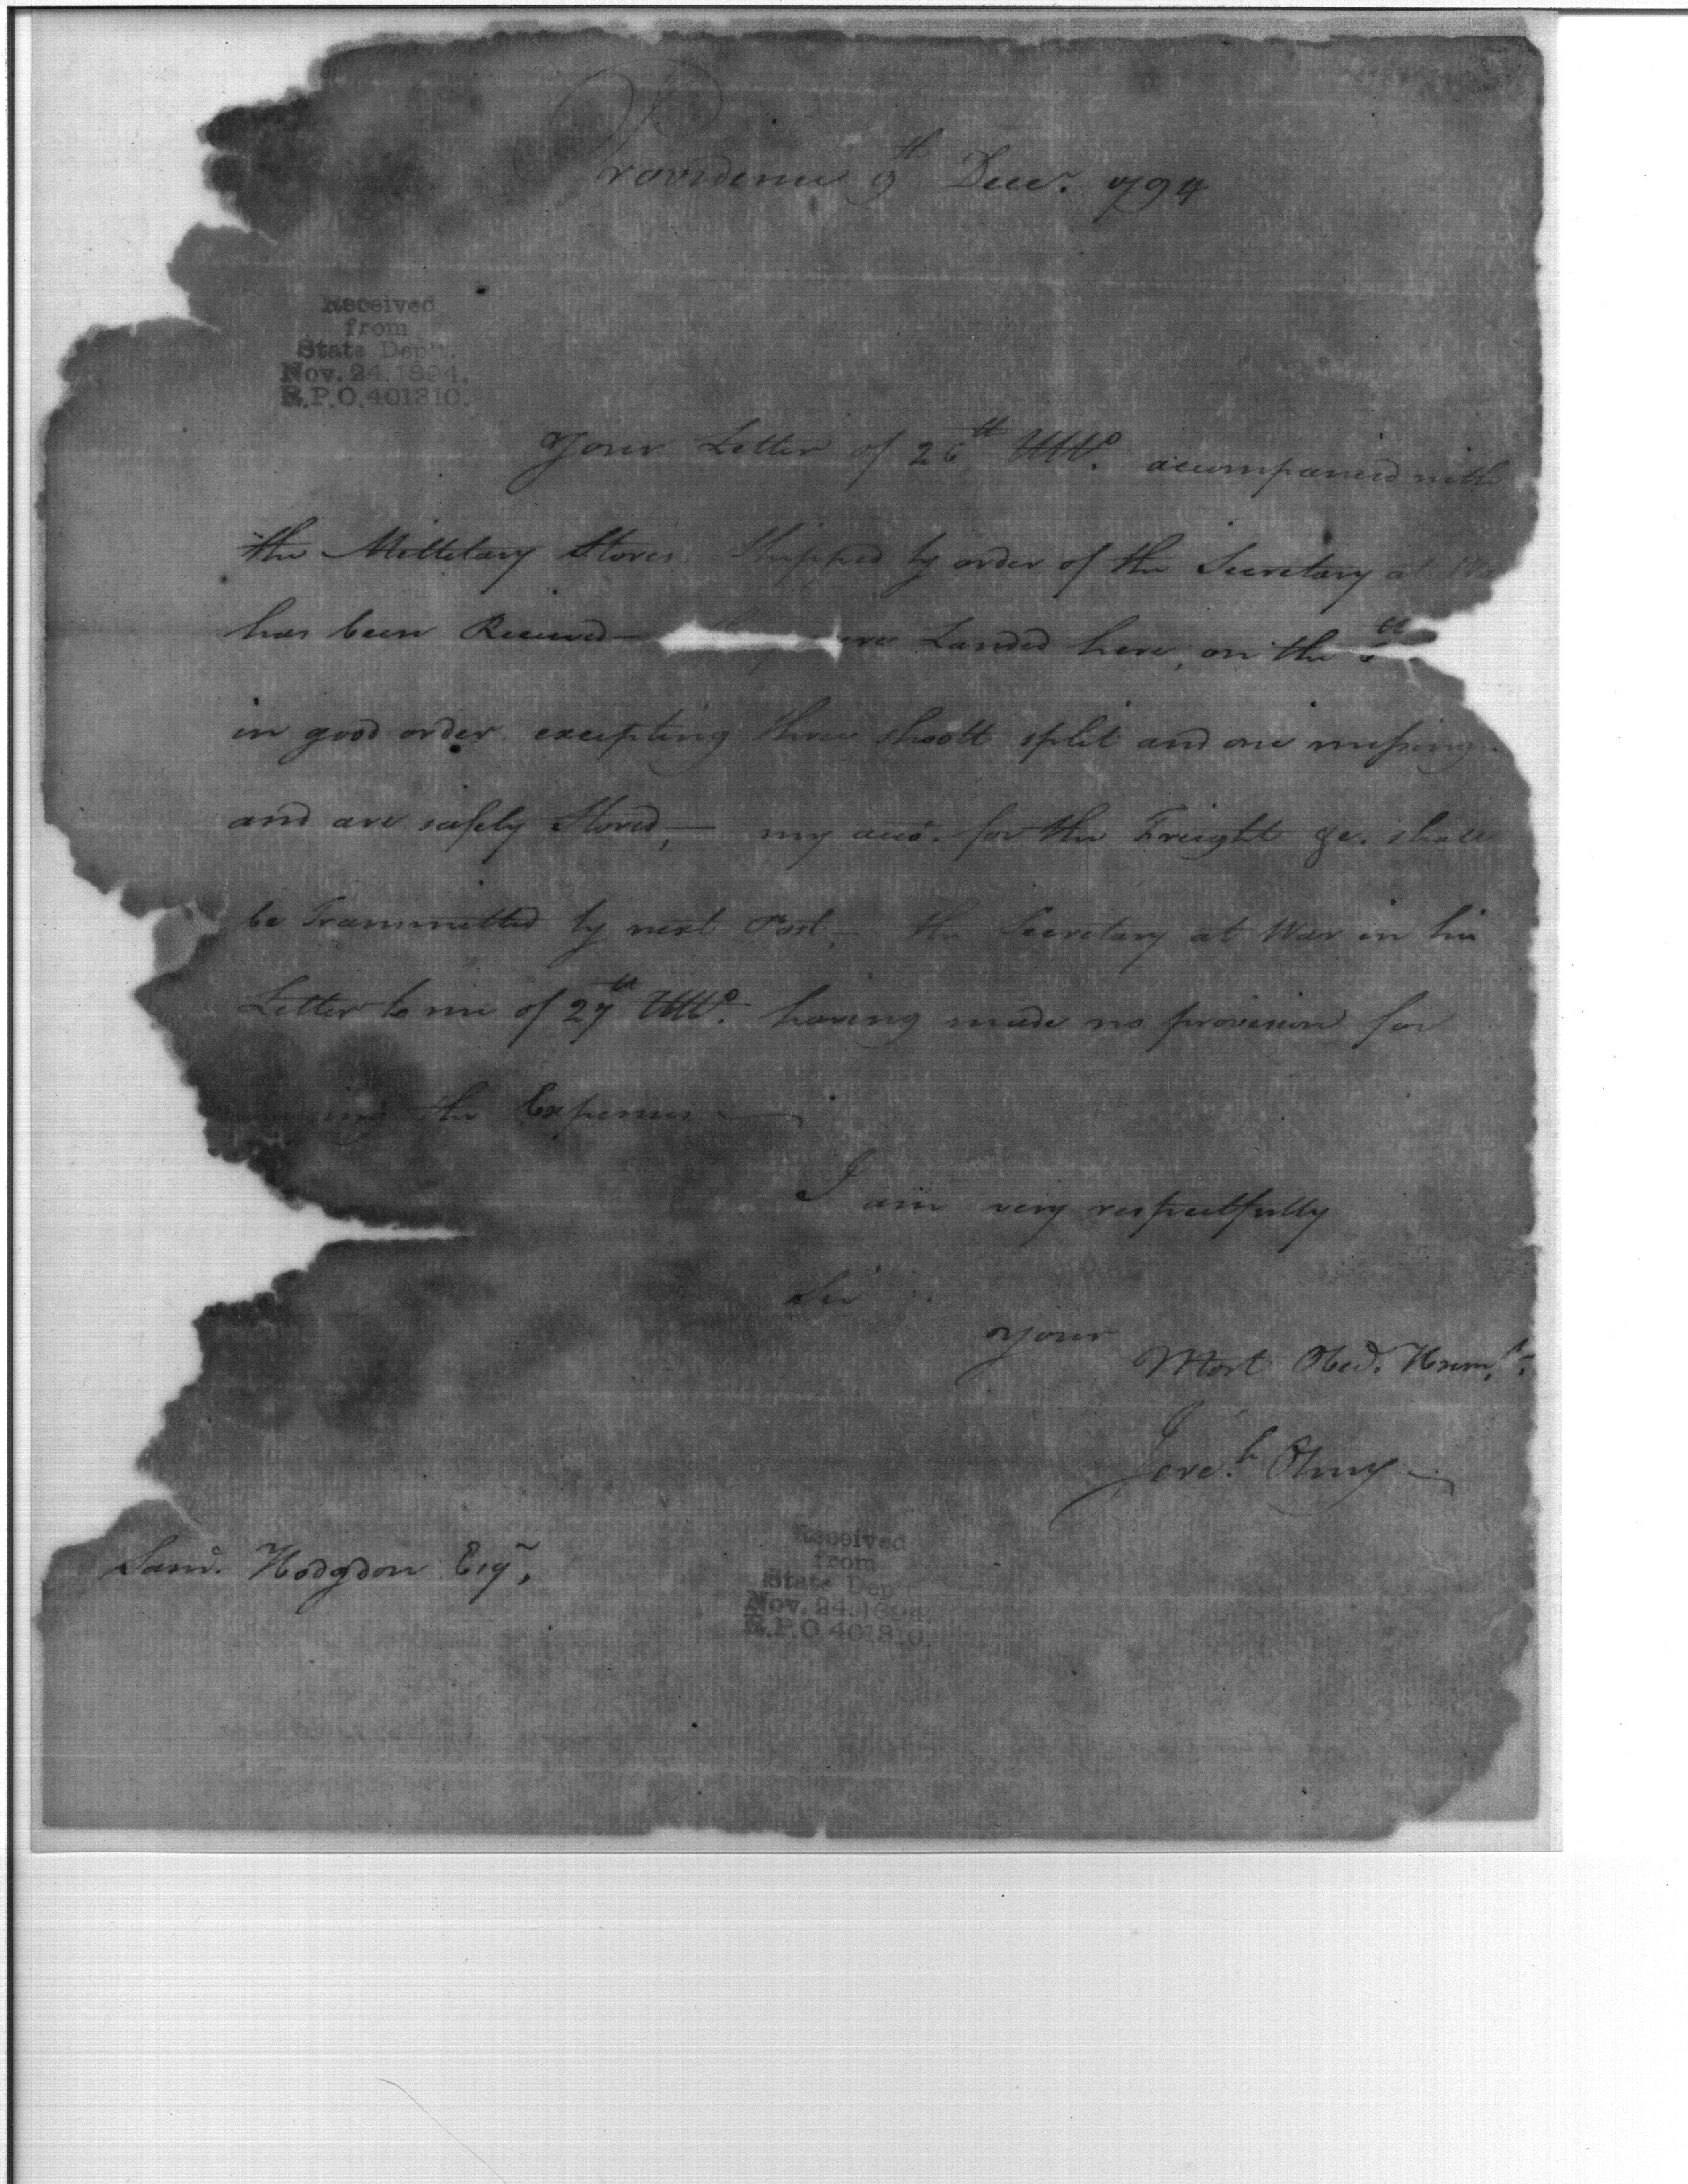 Providence 9th Decr. 1794
Received
from
State Dep't.
Nov. 24. 1894.
R.P.O. 401310.
Your Letter of 26th Ulto. accompanied with
the Milletary Stores Shipped by order of the Secretary at Wa
has been Received — were Landed here, on the th
in good order excepting three shott split and one missing
and are safely Stored, — my acco. for the Freight &c. shall
be Transmitted by next Post, — the Secretary at War in his
Letter to me of 27th Ulto. having made no provision for
the Expenses —
I am very respectfully
Sir
Your
Most Obed. Hum.
Jereh. Olney
Saml. Hodgdon Esqr,
Received
from
State Dep't
Nov. 24. 1894
R.P.O. 401310.